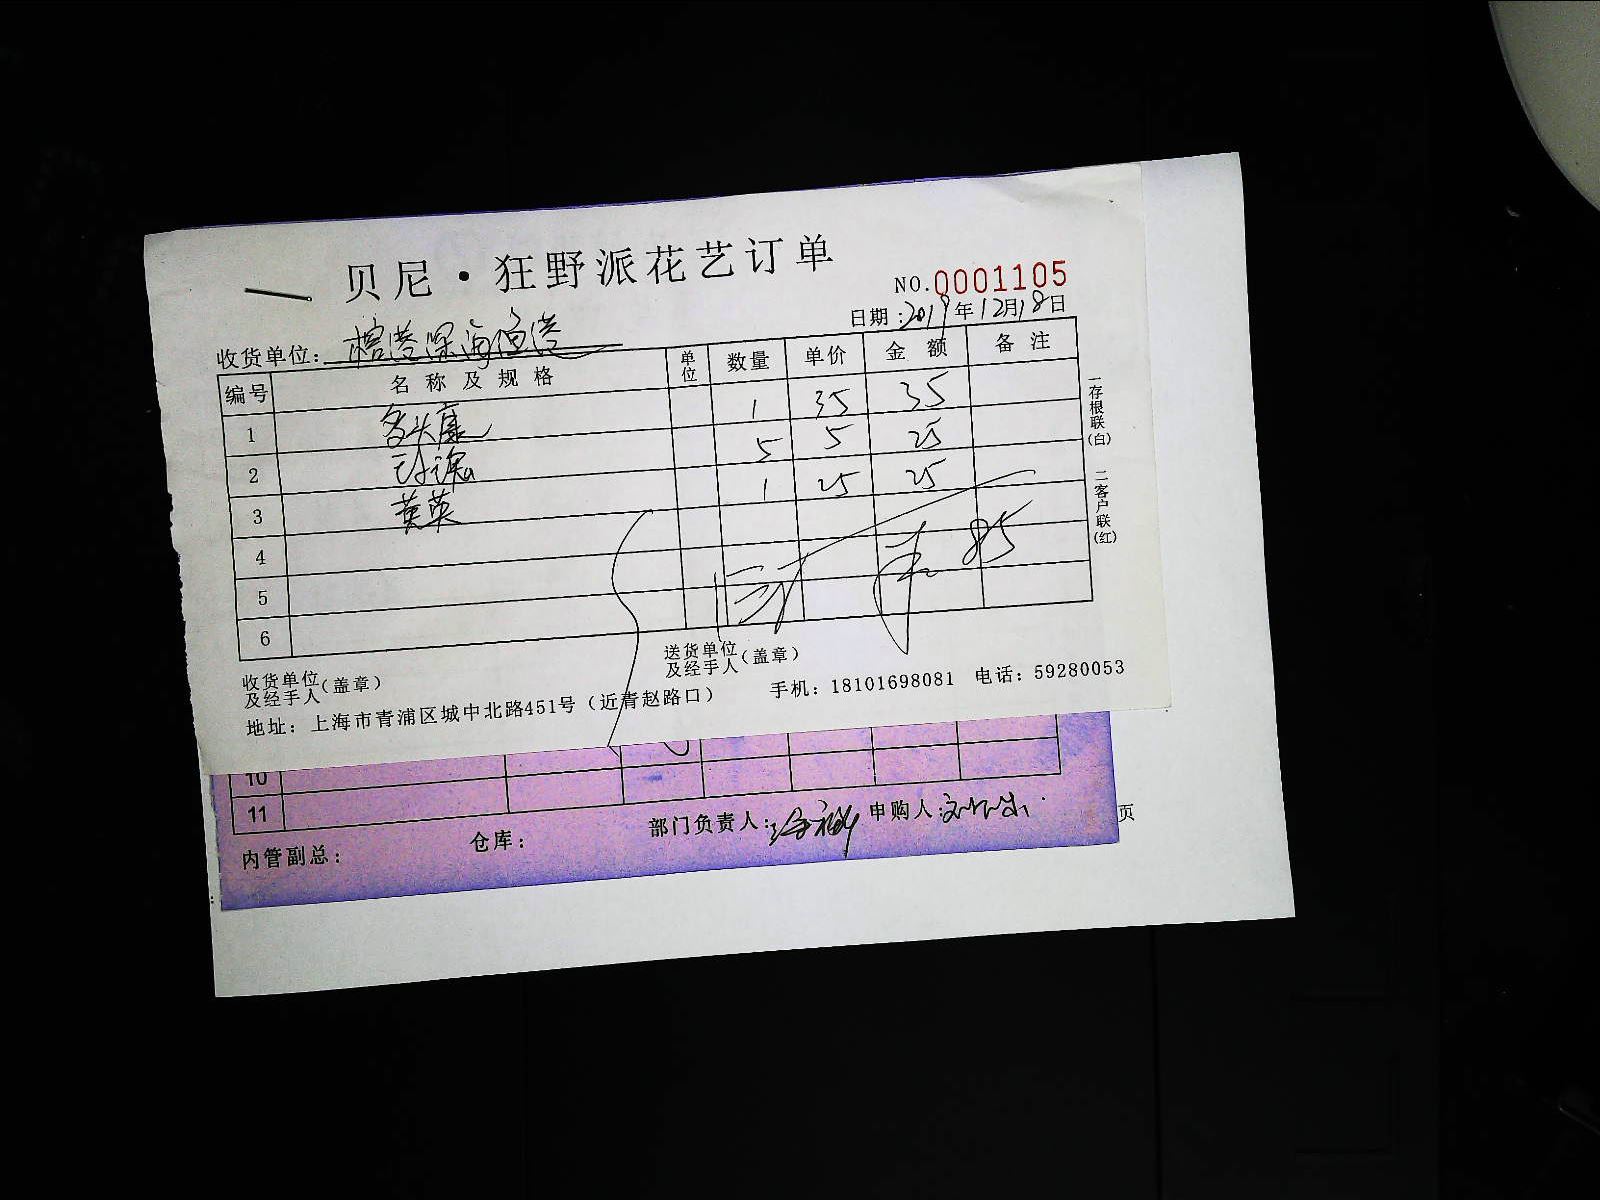 贝尼·狂野派花艺订单
NO.0001105
日期:2019年12月18日
收货单位:
编号 名称及规格 单位 数量 单价 金额 备注
1 多头康 1 35 35
2 5 5 25
3 黄英 1 25 25
4
5
6
85
一存根联(白) 二客户联(红)
收货单位及经手人(盖章)
送货单位及经手人(盖章)
地址: 上海市青浦区城中北路451号(近青赵路口) 手机: 18101698081 电话: 59280053
10
11
内管副总: 仓库: 部门负责人: 申购人:
页